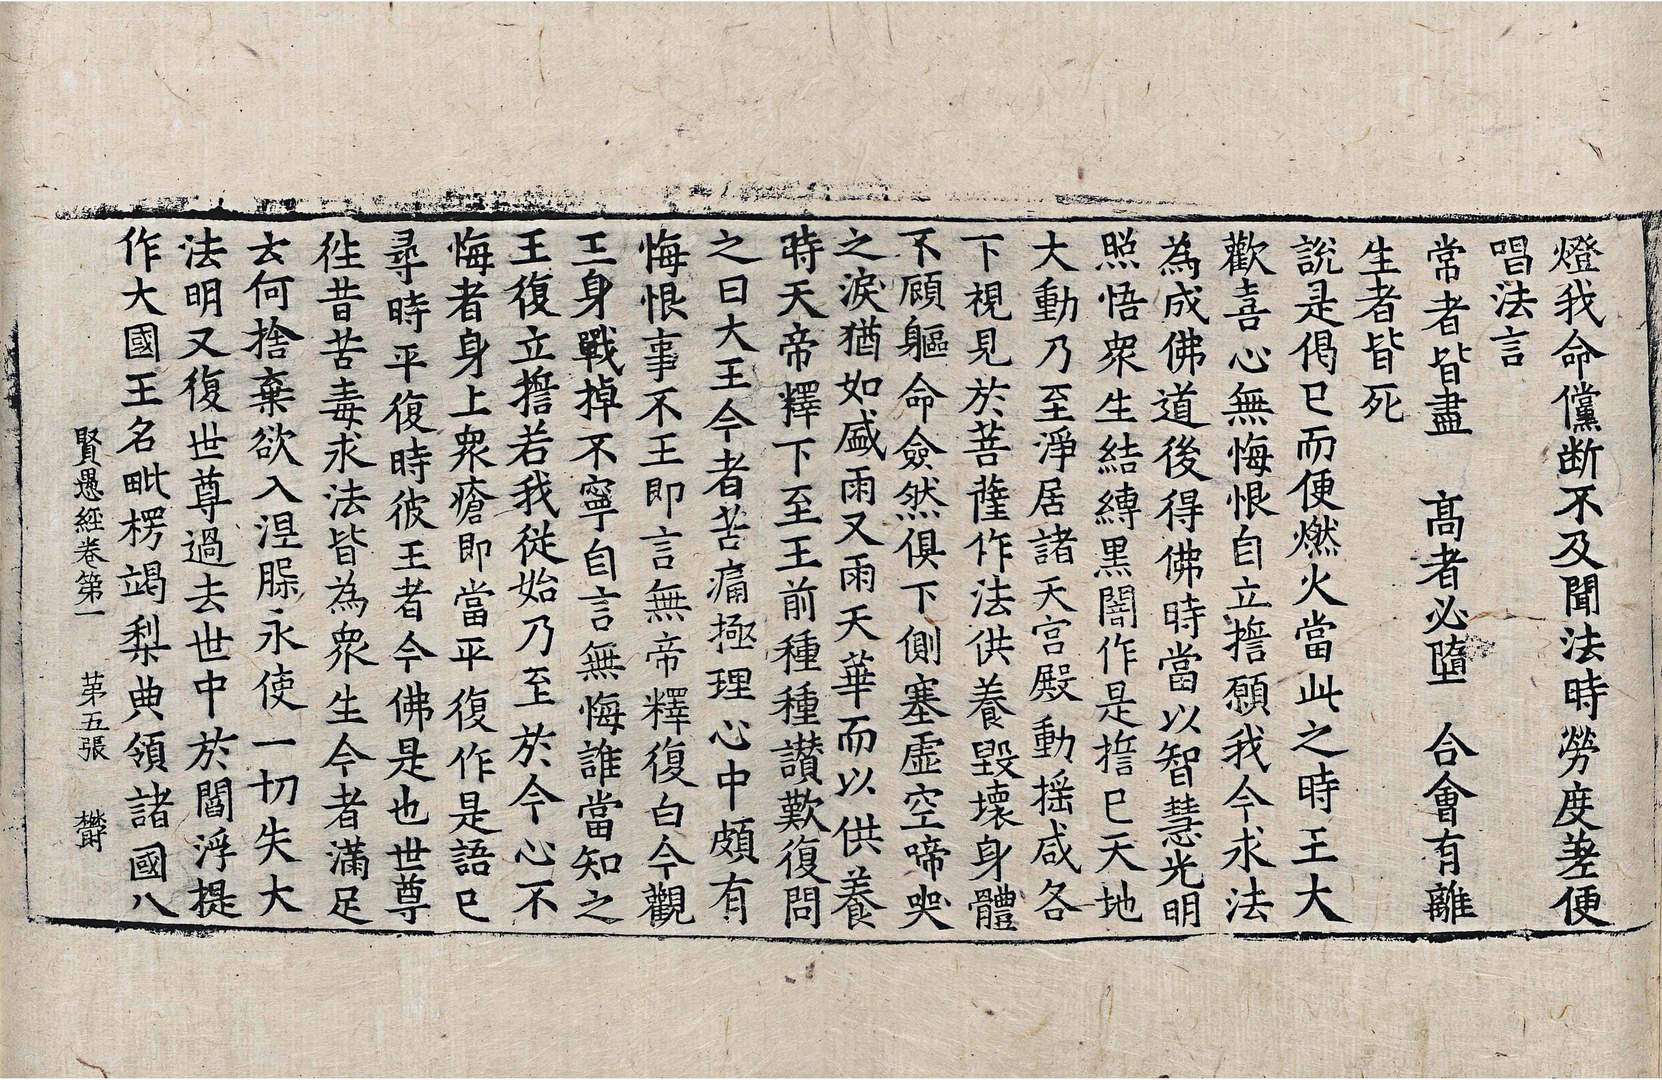 燈我命儻断不及聞法時勞度差便
唱法言
常者皆盡　高者必墮　合會有離
生者皆死
說是偈已而便燃火當此之時王大
歡喜心無悔恨自立擔願我今求法
為成佛道後得佛時當以智慧光明
照悟眾生結縛黑闇作是擔已天地
大動乃至淨居諸天宮殿動搖咸各
下視見於菩薩作法供養毀壞身體
不顧軀命僉然俱下側塞虛空啼哭
之淚猶如盛雨又雨天華而以供養
時天帝釋下至王前種種讃歎復問
之曰大王今者苦痛極理心中頗有
悔恨事不王即言無帝釋復白今觀
王身戰掉不寧自言無悔誰當知之
王復立擔若我從始乃至於今心不
悔者身上眾瘡即當平復作是語已
尋時平復時彼王者今佛是也世尊
徃昔苦毒求法皆為眾生今者滿足
去何捨棄欲入涅槃永使一切失大
法明又復世尊過去世中於閻浮提
作大國王名毗楞竭梨典領諸國八
賢愚經卷第一　第五張　欝